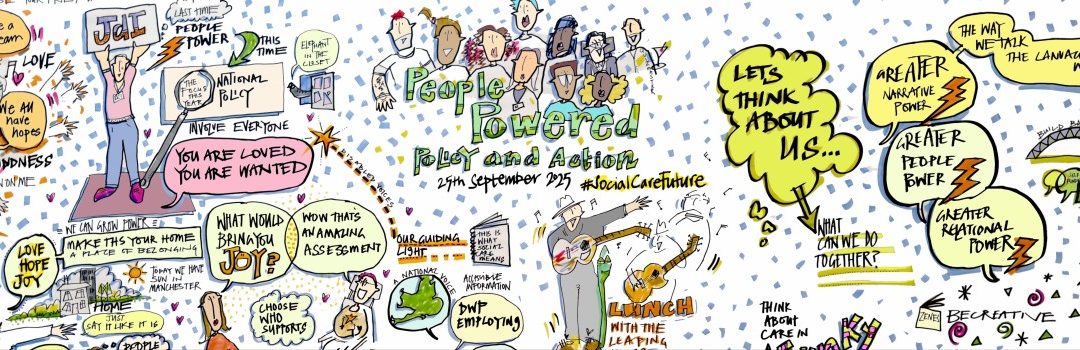 LOVE
We All
have
hopes
NDNESS
N ON ME
JdI
LAST TIME
PEOPLE
POWER
THIS
TIME
ELEPHANT
IN THE
CLOSET
THE
FOCUS
THIS
YEAR
NATIONAL
POLICY
INVOLVE EVERYONE
YOU ARE LOVED
YOU ARE WANTED
WE CAN GROW POWER
MAKE THIS YOUR HOME
A PLACE OF BELONGING
LOVE
HOPE
JOY
TODAY WE HAVE
SUN IN
MANCHESTER
HOME
JUST
SAY IT LIKE IT IS
PEOPLE
WHAT WOULD
BRING YOU
JOY?
WOW THAT'S
AN AMAZING
ASSESSMENT
CHOOSE
WHO
SUPPORTS
OUR GUIDING
LIGHT
THIS IS
WHAT
SOCIAL
CARE
MEANS
A NATIONAL VOICE
ACCESSIBLE
INFORMATION
DWP
EMPLOYING
People
Powered
Policy and Action
25th September 2025 #SocialCareFuture
LUNCH
WITH THE
LEAPING
LET'S
THINK
ABOUT
US...
WHAT
CAN WE DO
TOGETHER?
THINK
ABOUT
CARE IN
GREATER
NARRATIVE
POWER
GREATER
PEOPLE
POWER
GREATER
RELATIONAL
POWER
THE WAY
WE TALK
THE LANGUAG
BUILD
ZINES
BE CREATIVE